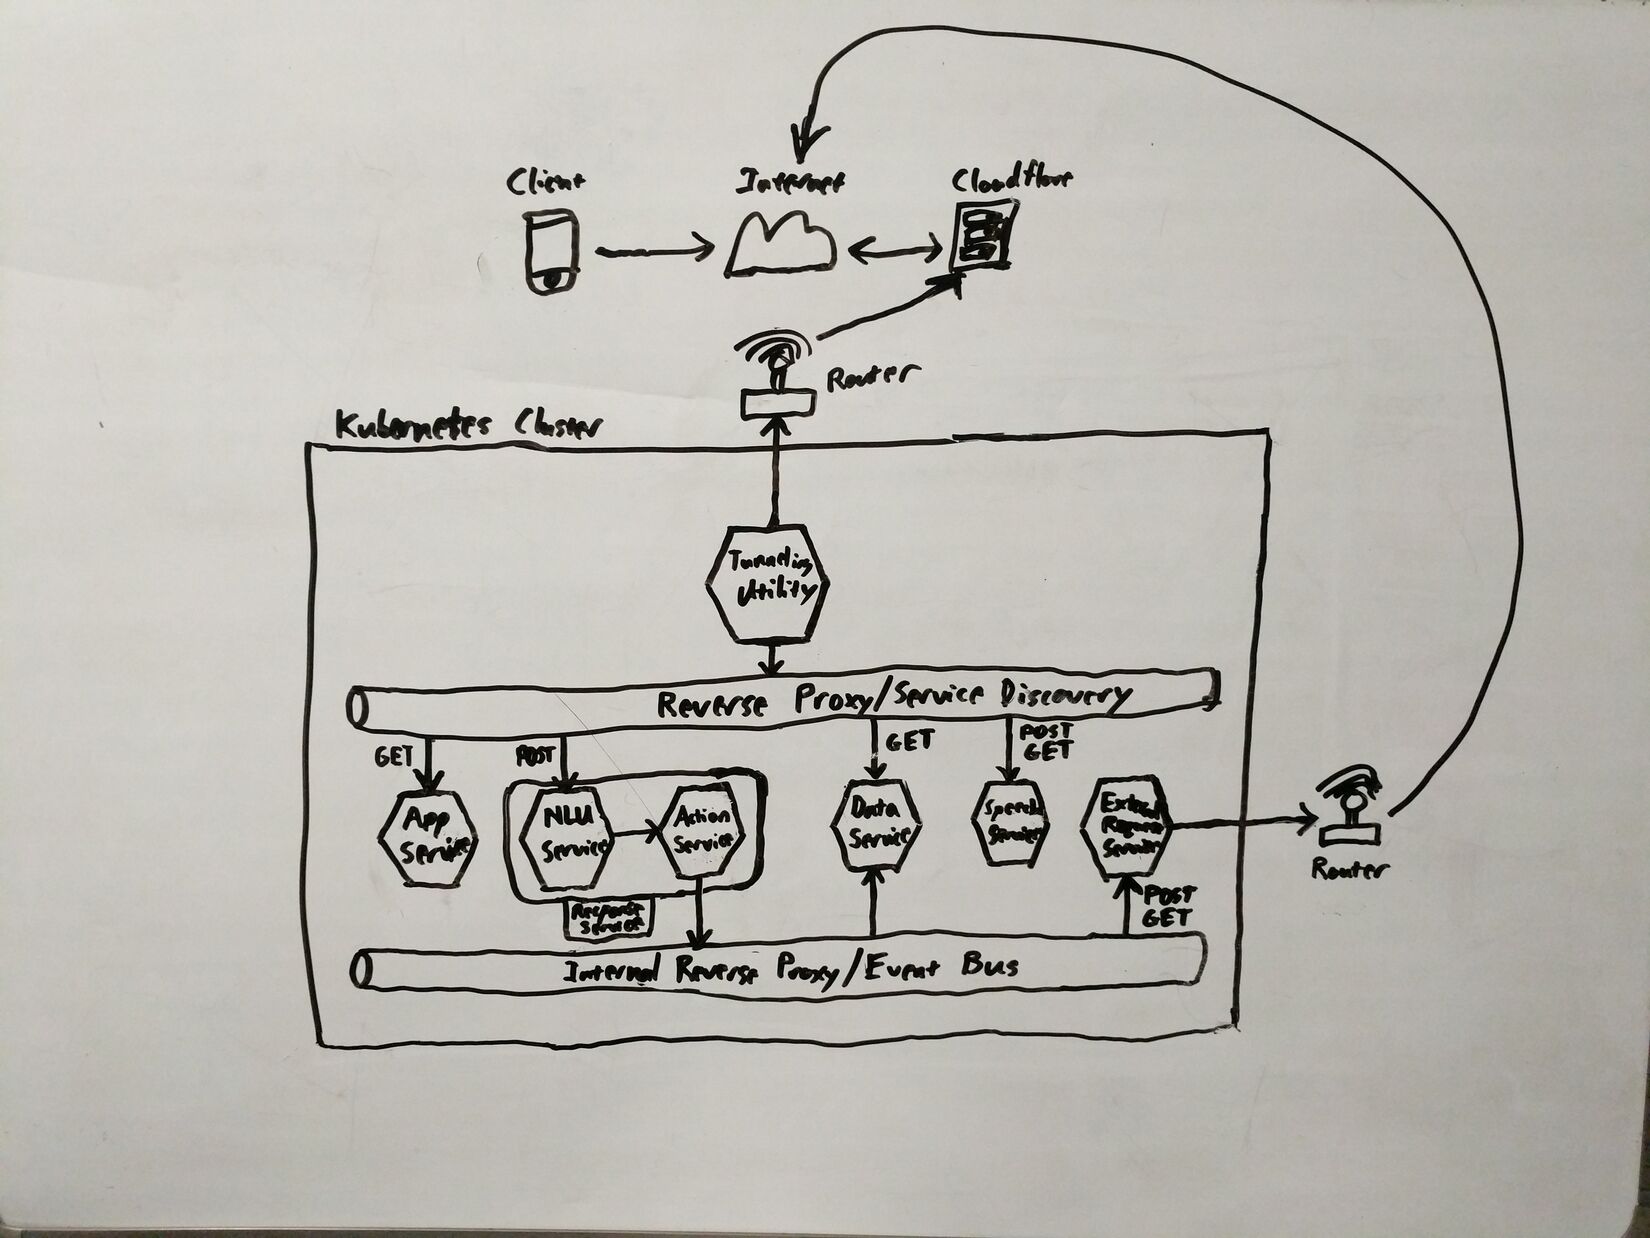 Client
Internet
Cloudflare
Router
Kubernetes Cluster
Tunneling
Utility
Reverse Proxy/Service Discovery
GET
POST
GET
POST
GET
App
Service
NLU
Service
Action
Service
Data
Service
Speech
Service
Service
Router
Response
Service
POST
GET
Internal Reverse Proxy/Event Bus